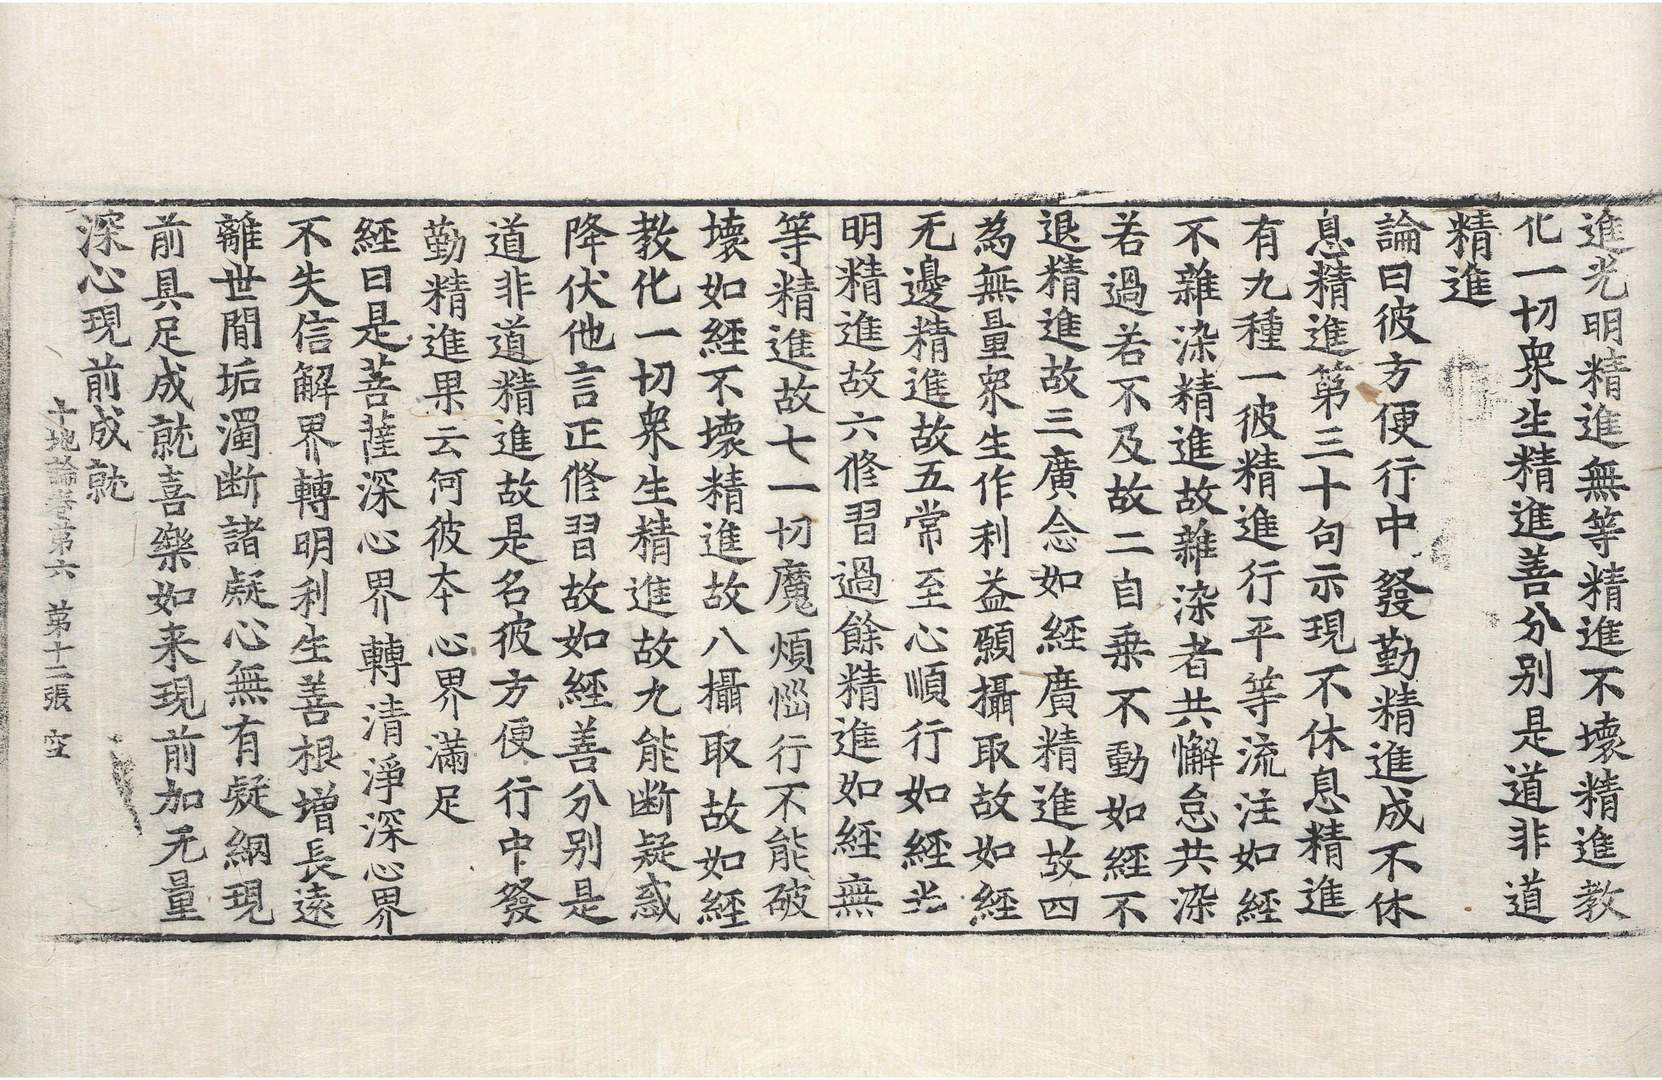 進光明精進無等精進不壞精進教
化一切衆生精進善分別是道非道
精進
論曰彼方便行中發勤精進成不休
息精進第三十句示現不休息精進
有九種一彼精進行平等流注如經
不雜染精進故雜染者共懈怠共染
若過若不及故二自乗不動如經不
退精進故三廣念如經廣精進故四
為無量衆生作利益願攝取故如經
无邊精進故五常至心順行如經光
明精進故六修習過餘精進如經無
等精進故七一切魔煩惱行不能破
壞如經不壞精進故八攝取故如經
教化一切衆生精進故九能断疑惑
降伏他言正修習故如經善分别是
道非道精進故是名彼方便行中發
勤精進果云何彼夲心界滿足
經曰是菩薩深心界轉清淨深心界
不失信解界轉明利生善根增長遠
離世間垢濁断諸疑心無有疑網現
前具足成就喜樂如来現前加无量
深心現前成就
十地論卷第六 第十二張 空